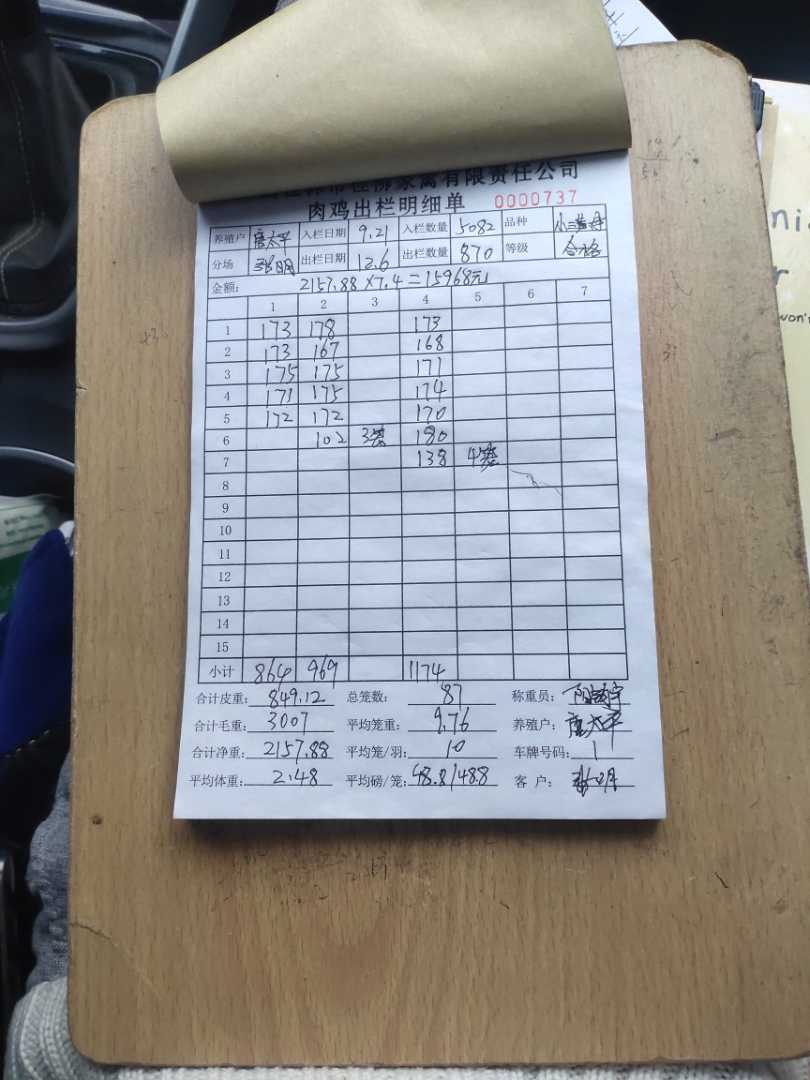 家禽有限责任公司
肉鸡出栏明细单 0000737
养殖户 唐太平 入栏日期 9.21 入栏数量 5082 品种
分场 出栏日期 12.6 出栏数量 870 等级 合格
金额: 2157.88×7.4=15968元
1 2 3 4 5 6 7
1 173 178 173
2 173 167 168
3 175 175 171
4 171 175 174
5 172 172 170
6 102 3笼 180
7 138 4笼
8
9
10
11
12
13
14
15
小计 864 969 1174
合计皮重: 849.12 总笼数: 87 称重员:
合计毛重: 3007 平均笼重: 9.76 养殖户: 唐太平
合计净重: 2157.88 平均笼/羽: 10 车牌号码: 1
平均体重: 2.48 平均磅/笼: 48.8/488 客户: